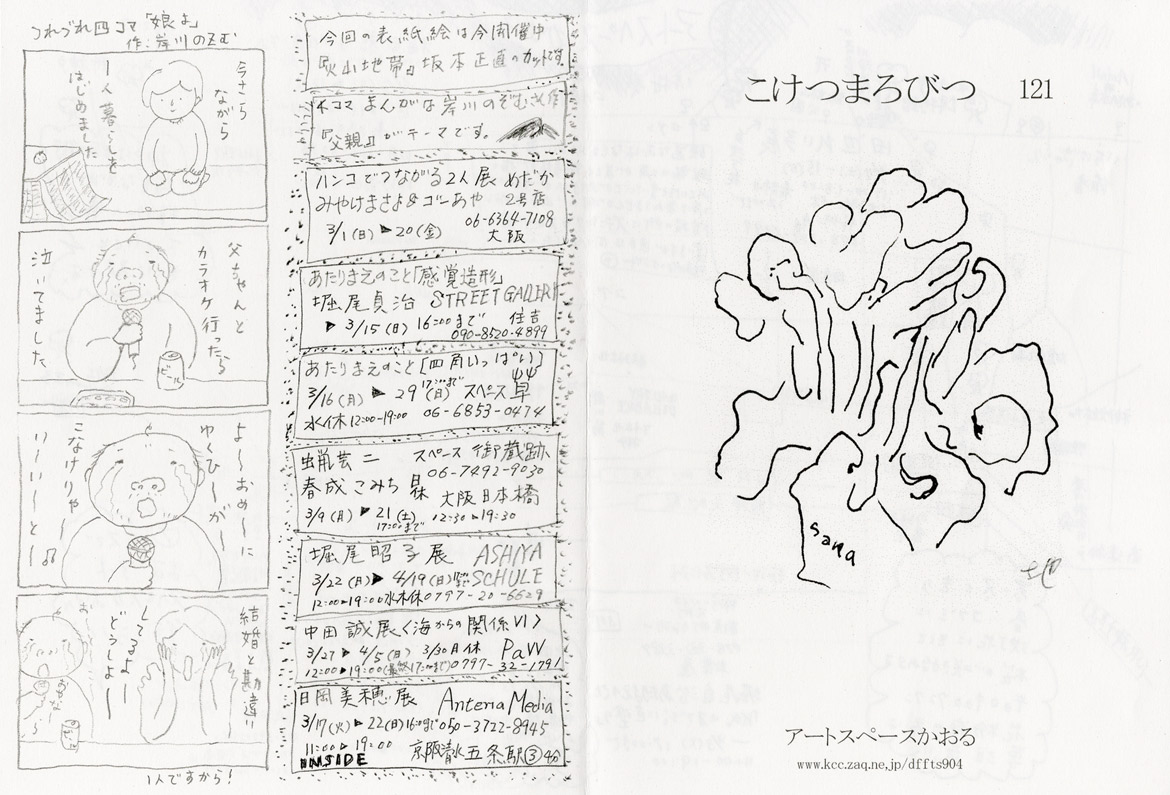 つれづれ四コマ「娘よ」
作:岸川のぞむ
今さら
ながら
一人暮らしを
はじめました
父ちゃんと
カラオケ行ったら
泣いてました
ビール
よ〜おめ〜に
ゆくひ〜が〜
こなけりゃ〜
い〜い〜と〜♫
結婚と勘違い
してるよ〜
どうしよ〜
1人ですから!
今回の表紙絵は今開催中
『火山地帯』坂本正直のカットです
4コマまんがは岸川のぞむさん作
『父親』がテーマです。
ハンコでつながる2人展 めだか
みやけまさよ& ゴーあや 2号店
06-6364-7108
3/1(日)▶20(金) 大阪
あたりまえのこと「感覚造形」
堀尾貞治 STREET GALLERY
▶3/15(日) 16:00まで 住吉
090-8520-4899
あたりまえのこと[四角いっぱい]
3/16(月)▶29(日) 17:00まで スペース草
水休 12:00-19:00 06-6853-0474
スペース 御蔵跡
06-7492-9030
春成こみち 大阪日本橋
3/9(月)▶21(土) 12:30▶19:30
17:00まで
堀尾昭子展 ASHIYA
3/22(月)▶4/19(日) SCHULE
12:00▶19:00 水木休 0797-20-6629
中田誠展<海からの関係VI>
3/27▶4/5(日) 3/30月休 PaW
12:00▶19:00(最終17:00まで) 0797-32-1791
日岡美穂展 Anteria Media
3/17(火)▶22(日)16:00まで 050-3722-8945
11:00▶19:00 京阪清水五条駅③
INSIDE
こけつまろびつ 121
sana
アートスペースかおる
www.kcc.zaq.ne.jp/dffts904